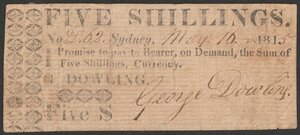 FIVE SHILLINGS.
No. 2162. Sydney, May 16 1815
I Promise to pay to Bearer, on Demand, the Sum of
Five Shillings, Currency.
G DOWLING.
George Dowling
Five S